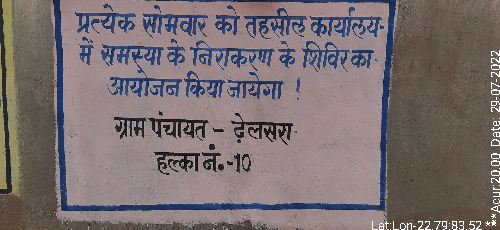 प्रत्येक सोमवार को तहसील कार्यालय-
में समस्या के निराकरण के शिविर का-
आयोजन किया जायेगा !
ग्राम पंचायत - ढ़ेलसरा
हल्का नं.-10
Lat Lon-22.79:83.52 ***Acur 20.00 Date: 29-07-2022